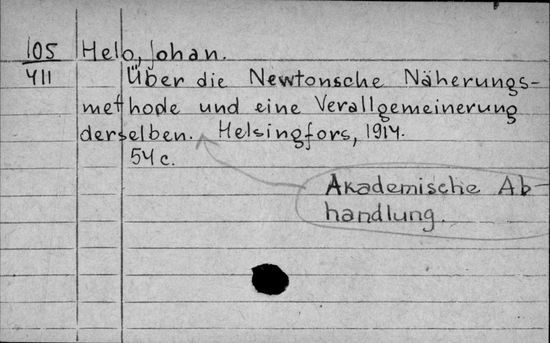 105 Helo, Johan.
411 Über die Newtonsche Näherungs-
methode und eine Verallgemeinerung
derselben. Helsingfors, 1914.
54 c.
Akademische Ab-
handlung.